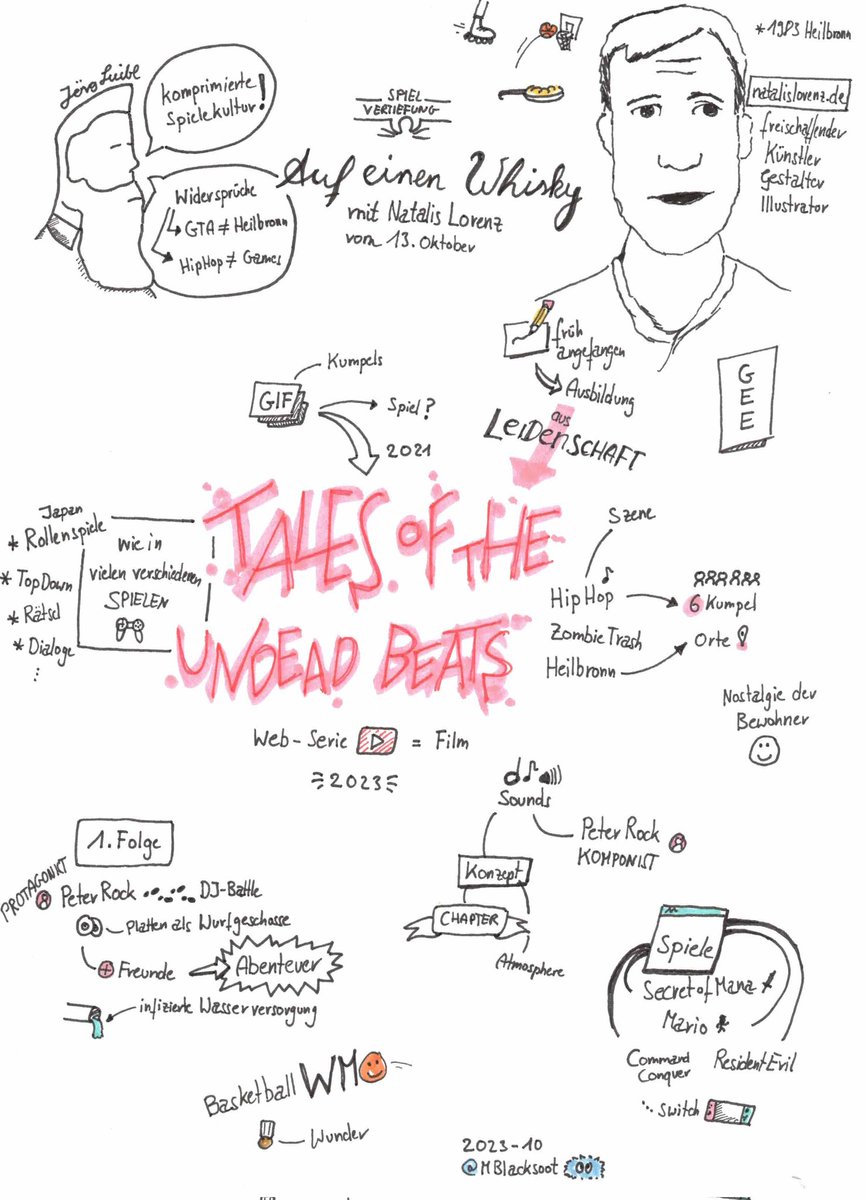 Jörg Luibl
komprimierte
Spielekultur!
Widersprüche
GTA ≠ Heilbronn
HipHop ≠ Games
SPIEL
VERTIEFUNG
Auf einen Whisky
mit Natalis Lorenz
vom 13. Oktober
* 1983 Heilbronn
natalislorenz.de
freischaffender
Künstler
Gestalter
Illustrator
früh
angefangen
Ausbildung
aus
LEIDENSCHAFT
GEE
Kumpels
GIF
Spiel?
2021
TALES OF THE
UNDEAD BEATS
Japan
* Rollenspiele
* TopDown
* Rätsel
* Dialoge
⋮
Wie in
vielen verschiedenen
SPIELEN
Szene
HipHop
6 Kumpel
ZombieTrash
Orte
Heilbronn
Nostalgie der
Bewohner
Web-Serie = Film
2023
Sounds
Peter Rock
KOMPONIST
Konzept
CHAPTER
Atmosphere
1. Folge
PROTAGONIKT
Peter Rock DJ-Battle
Platten als Wurfgeschosse
Freunde
Abenteuer
infizierte Wasserversorgung
Spiele
Secret of Mana
Mario
Command
Conquer
Resident Evil
... Switch
Basketball WM
Wunder
2023-10
@MBlacksoot